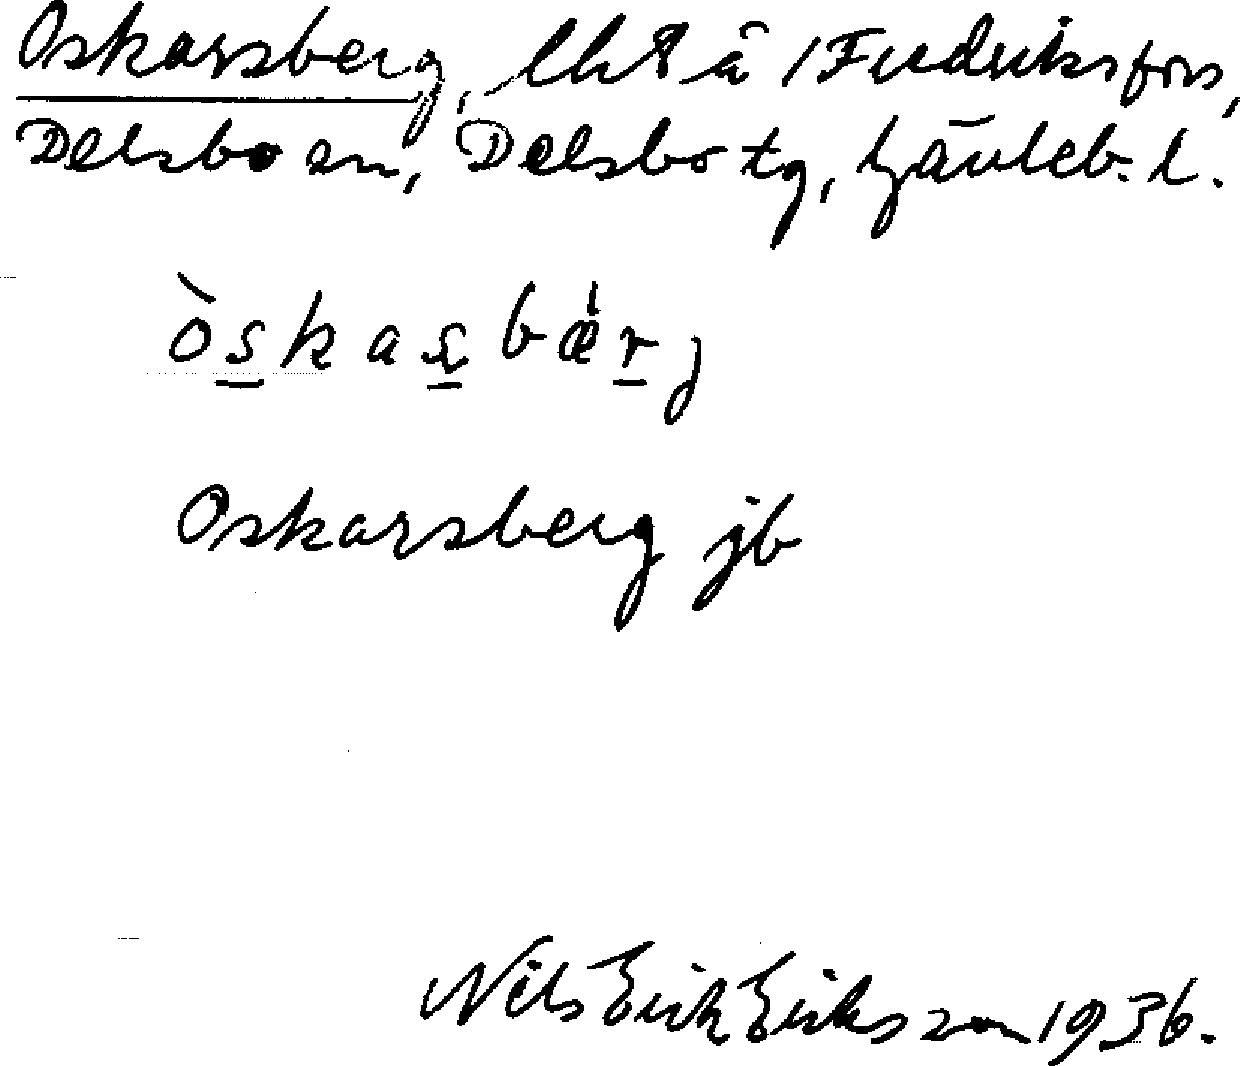 Oskarsberg, lht å /Fredriksfors,
Delsbo sn, Delsbo tg, Gävleb. l.
òskasbæ̀rj
Oskarsberg jb
Nils Erik Eriksson 1936.